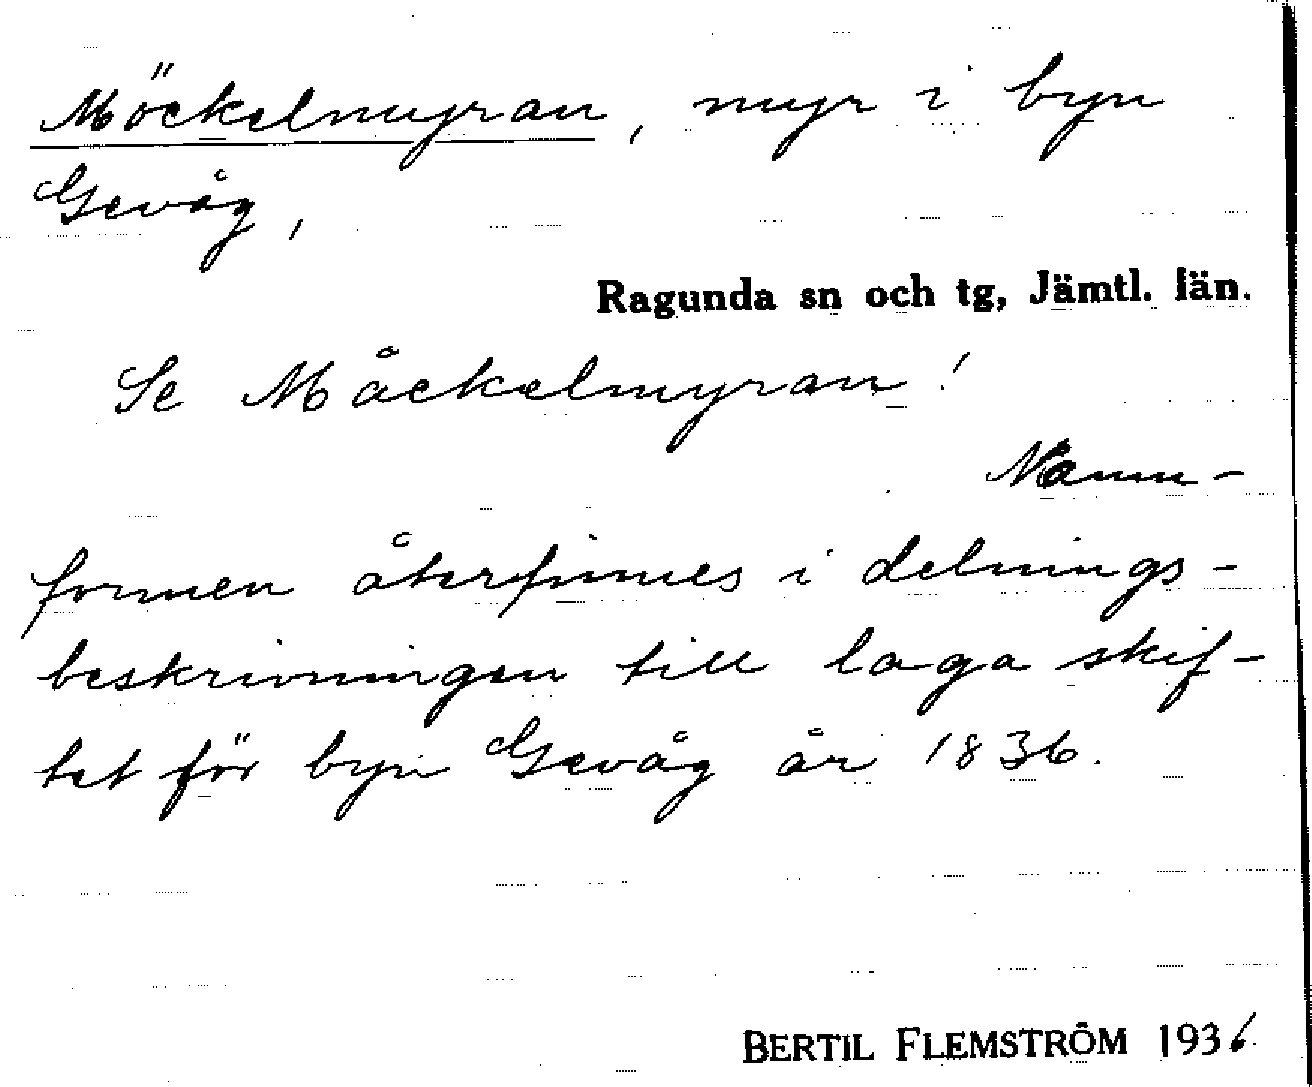 Möckelmyran, myr i byn
Gevåg,
Ragunda sn och tg, Jämtl. län.
Se Måckelmyran!
Namn-
formen återfinnes i delnings-
beskrivningen till laga skif-
tet för byn Gevåg år 1836.
BERTIL FLEMSTRÖM 1936